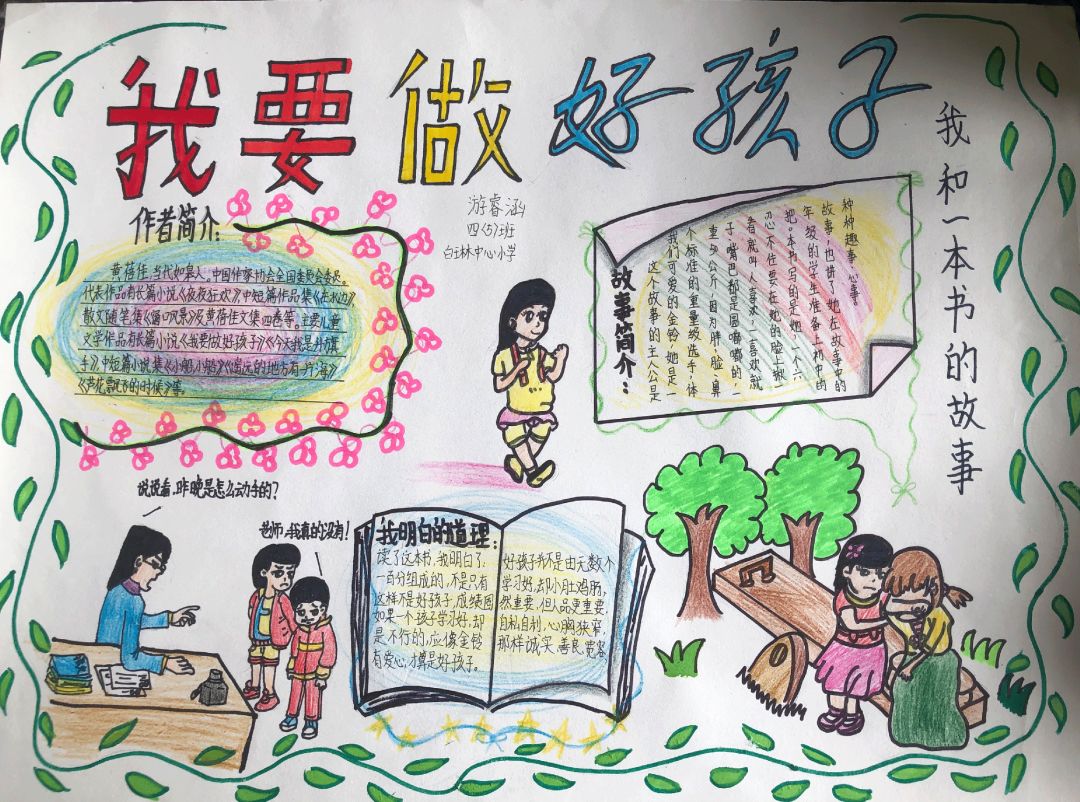 我要做好孩子
我和一本书的故事
游睿涵
四(5)班
白玨林中心小学
作者简介:
黄蓓佳,当代如皋人,中国作家协会全国委员会委员。
代表作品有长篇小说《夜夜狂欢》,中短篇作品集《在水边》
散文随笔集《窗口风景》及黄蓓佳文集四卷等。主要儿童
文学作品有长篇小说《我要做好孩子》《今天我是升旗
手》,中短篇小说集《小船,小船》《遥远的地方有一片海》
《芦花飘飞的时候》等。
故事简介:
这个故事的主人公是一
我们可爱的金铃,她是一
个标准的重量级选手,体
重90公斤,因为胖,脸、鼻
子、嘴巴都是圆嘟嘟的,一
看就叫人喜欢,一喜欢就
忍不住要在她的脸上掀一
把。本书写的是她,一个六
年级的学生准备上初中的
故事,也讲了她在故事中的
种种趣事、心事
说说看,昨晚是怎么动手的?
老师,我真的没有!
我明白的道理:
读了这本书,我明白了:好孩子我不是由无数个
一百分组成的,不是只有学习好,却小肚鸡肠,
这样不是好孩子,成绩固然重要,但人品更重要,
如果一个孩子学习好,却自私自利,心胸狭窄,
是不行的,应像金铃那样诚实、善良、宽容
有爱心,才算是好孩子。